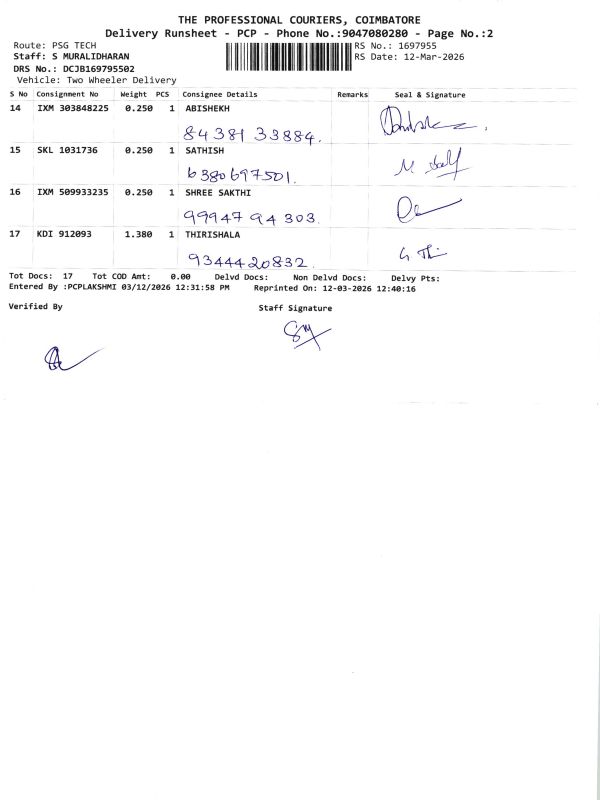 THE PROFESSIONAL COURIERS, COIMBATORE
Delivery Runsheet - PCP - Phone No.:9047080280 - Page No.:2
Route: PSG TECH RS No.: 1697955
Staff: S MURALIDHARAN RS Date: 12-Mar-2026
DRS No.: DCJB169795502
Vehicle: Two Wheeler Delivery
S No Consignment No Weight PCS Consignee Details Remarks Seal & Signature
14 IXM 303848225 0.250 1 ABISHEKH
84381 33884.
15 SKL 1031736 0.250 1 SATHISH
6380697501.
16 IXM 509933235 0.250 1 SHREE SAKTHI
99947 94 303.
17 KDI 912093 1.380 1 THIRISHALA
9344420832.
Tot Docs: 17 Tot COD Amt: 0.00 Delvd Docs: Non Delvd Docs: Delvy Pts:
Entered By :PCPLAKSHMI 03/12/2026 12:31:58 PM Reprinted On: 12-03-2026 12:40:16
Verified By Staff Signature